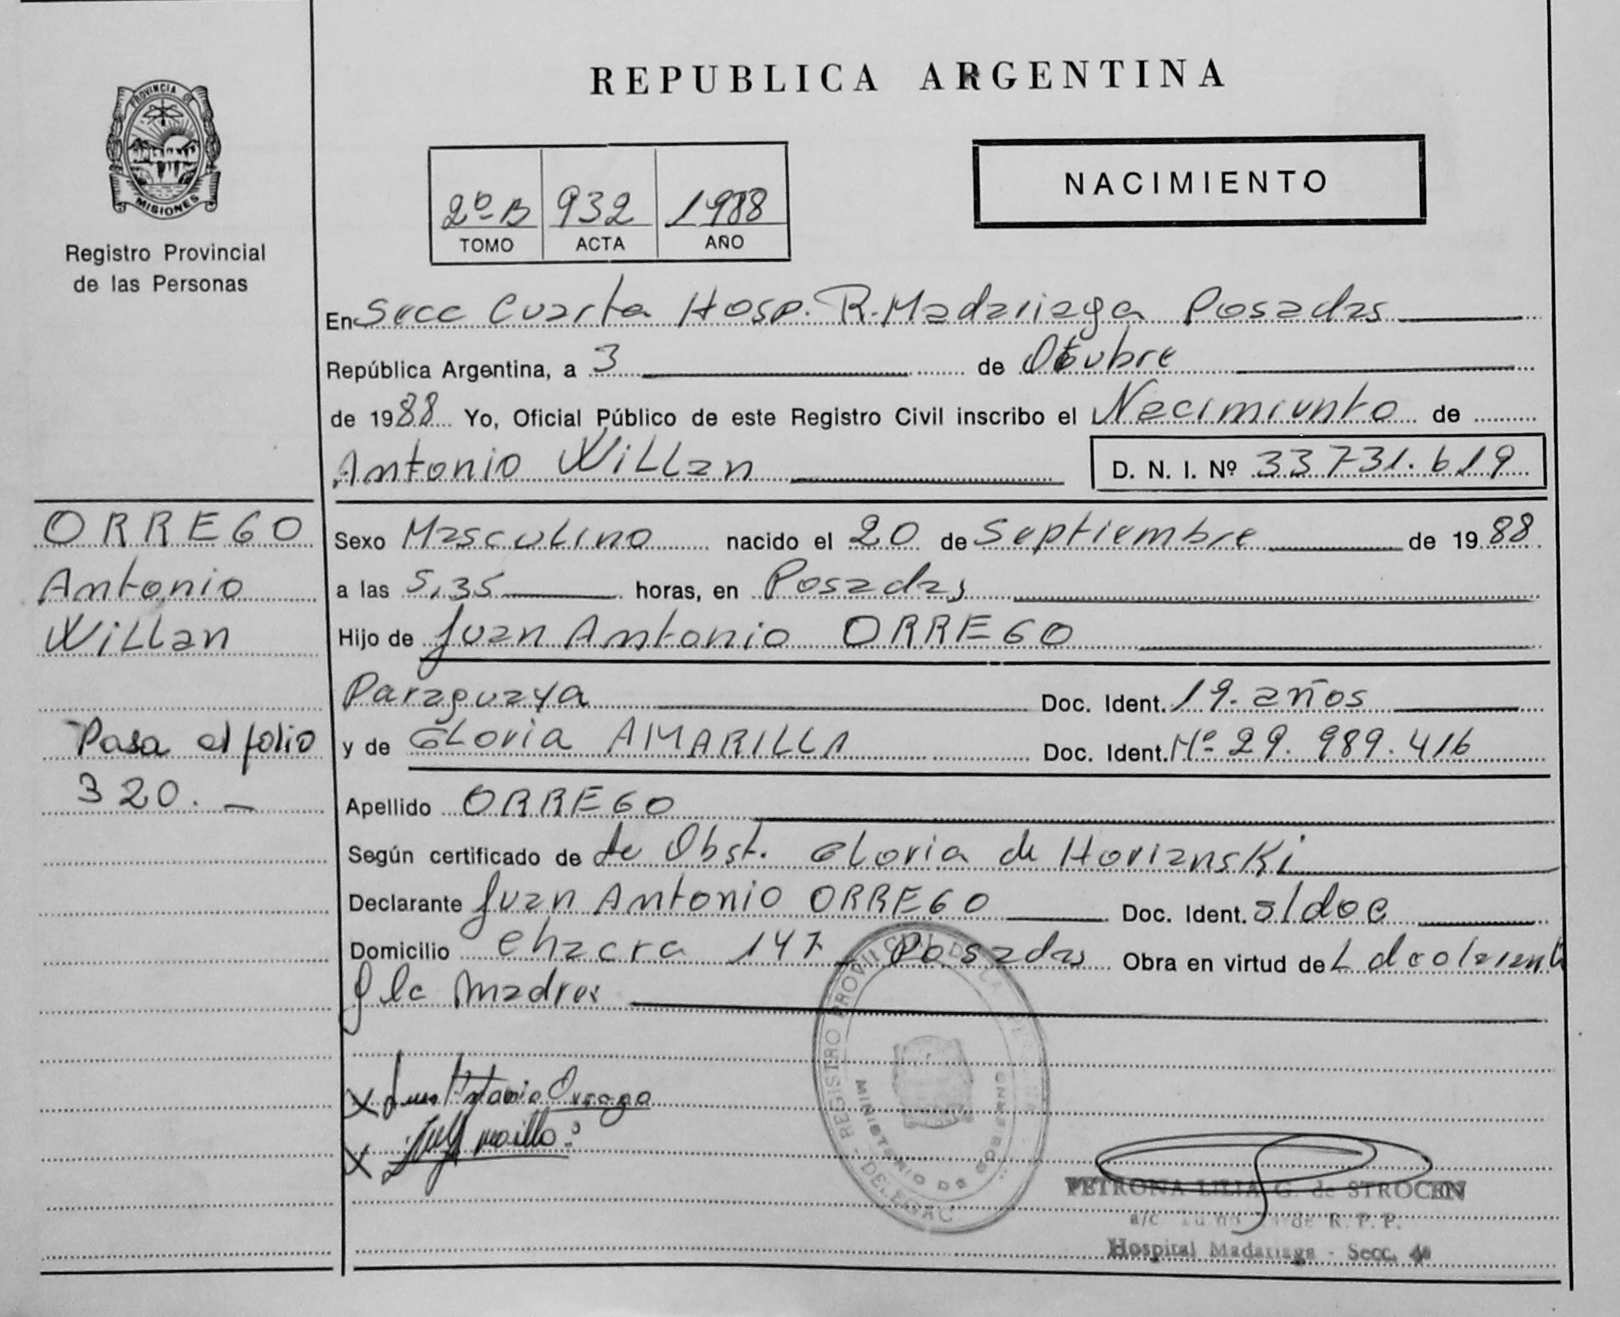 REPUBLICA ARGENTINA
PROVINCIA DE
MISIONES
Registro Provincial
de las Personas
2º B 932 1988
TOMO ACTA AÑO
NACIMIENTO
En Secc Cuarta Hosp. R. Madariaga Posadas
República Argentina, a 3 de Otubre
de 1988 Yo, Oficial Público de este Registro Civil inscribo el Nacimiento de
Antonio Willan D. N. I. Nº 33731.619
ORREGO
Antonio
Willan
Pasa al folio
320.-
Sexo Masculino nacido el 20 de Septiembre de 1988
a las 5,35 horas, en Posadas
Hijo de Juan Antonio ORREGO
Paraguaya Doc. Ident. 19. años
y de Gloria AMARILLA Doc. Ident. Nº 29.989.416
Apellido ORREGO
Según certificado de de Obst. Gloria de Horianski
Declarante Juan Antonio ORREGO Doc. Ident. s/doc
Domicilio Chacra 147- Posadas Obra en virtud de
madres
Juan Antonio Orrego
REGISTRO PROVINCIAL DE LAS
MINISTERIO DE GOBIERNO
PETRONA LILIA G. de STROCEN
a/c. R. P. P.
Hospital Madariaga - Secc. 4a